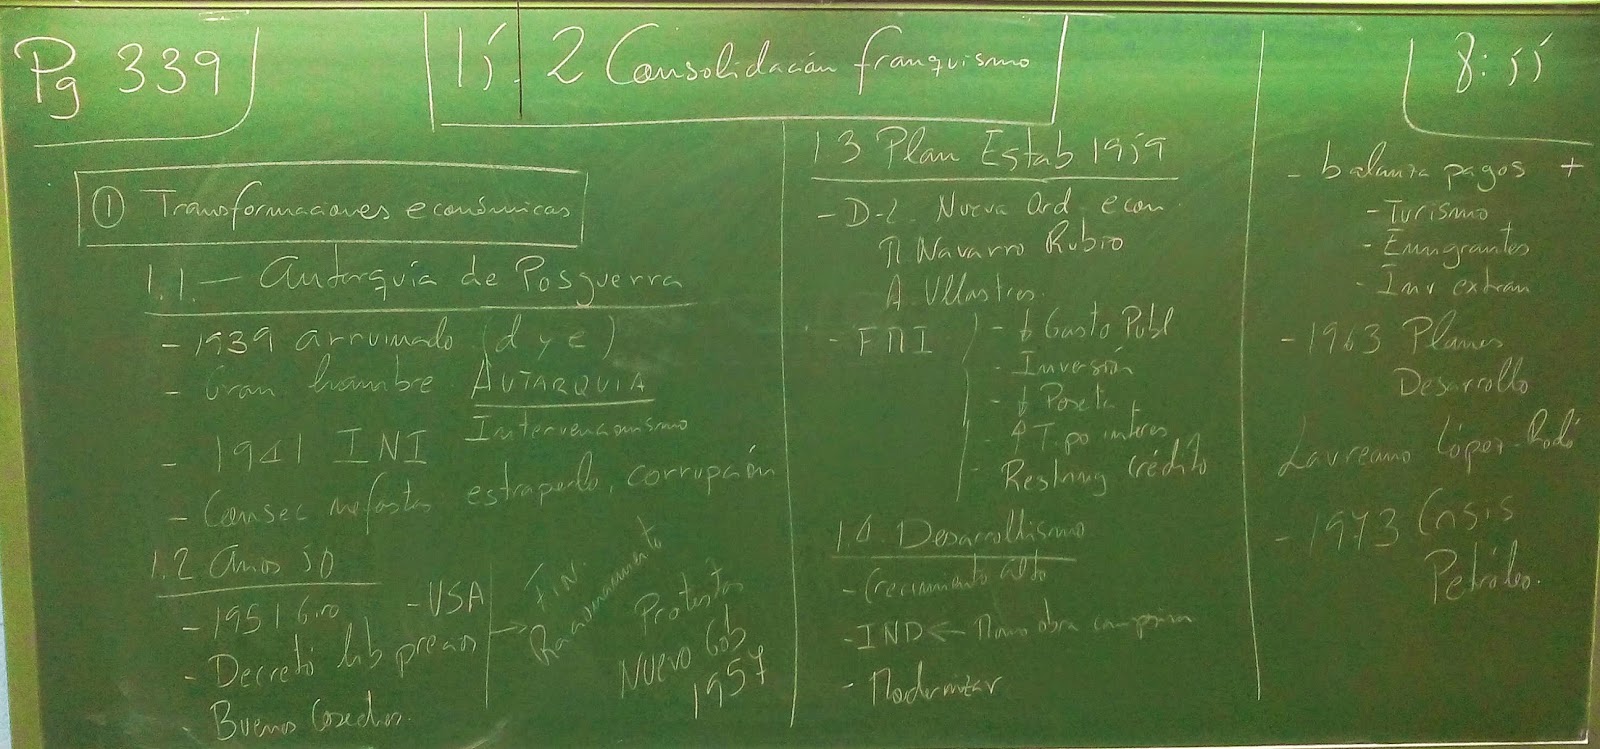 Pg 339
15.2 Consolidación franquismo
8:55
① Transformaciones económicas
1.1.- Autarquía de Posguerra
- 1939 arruinado (d y e)
- Gran hambre. AUTARQUIA
Intervencionismo
- 1941 INI
- Consec nefastas estraperlo, corrupción
1.2 Años 50
- 1951 Giro
- USA
- Decretó lib precios
- Buenas Cosechas.
→ FIN.
Racionamiento
Protestas
Nuevo Gob
1957
1.3 Plan Estab 1959
- D-L Nueva Ord. econ.
M. Navarro Rubio
A. Ullastres.
- FMI
- ↓ Gasto Publ
- Inversión
- ↓ Peseta
- ↑ Tipo interes
- Restring crédito
1.4. Desarrollismo
- Crecimiento alto
- IND ← Mano obra campesina
- Modernizar
- balanza pagos +
- Turismo
- Emigrantes
- Inv extran
- 1963 Planes
Desarrollo
Laureano López-Rodó
- 1973 Crisis
Petróleo.